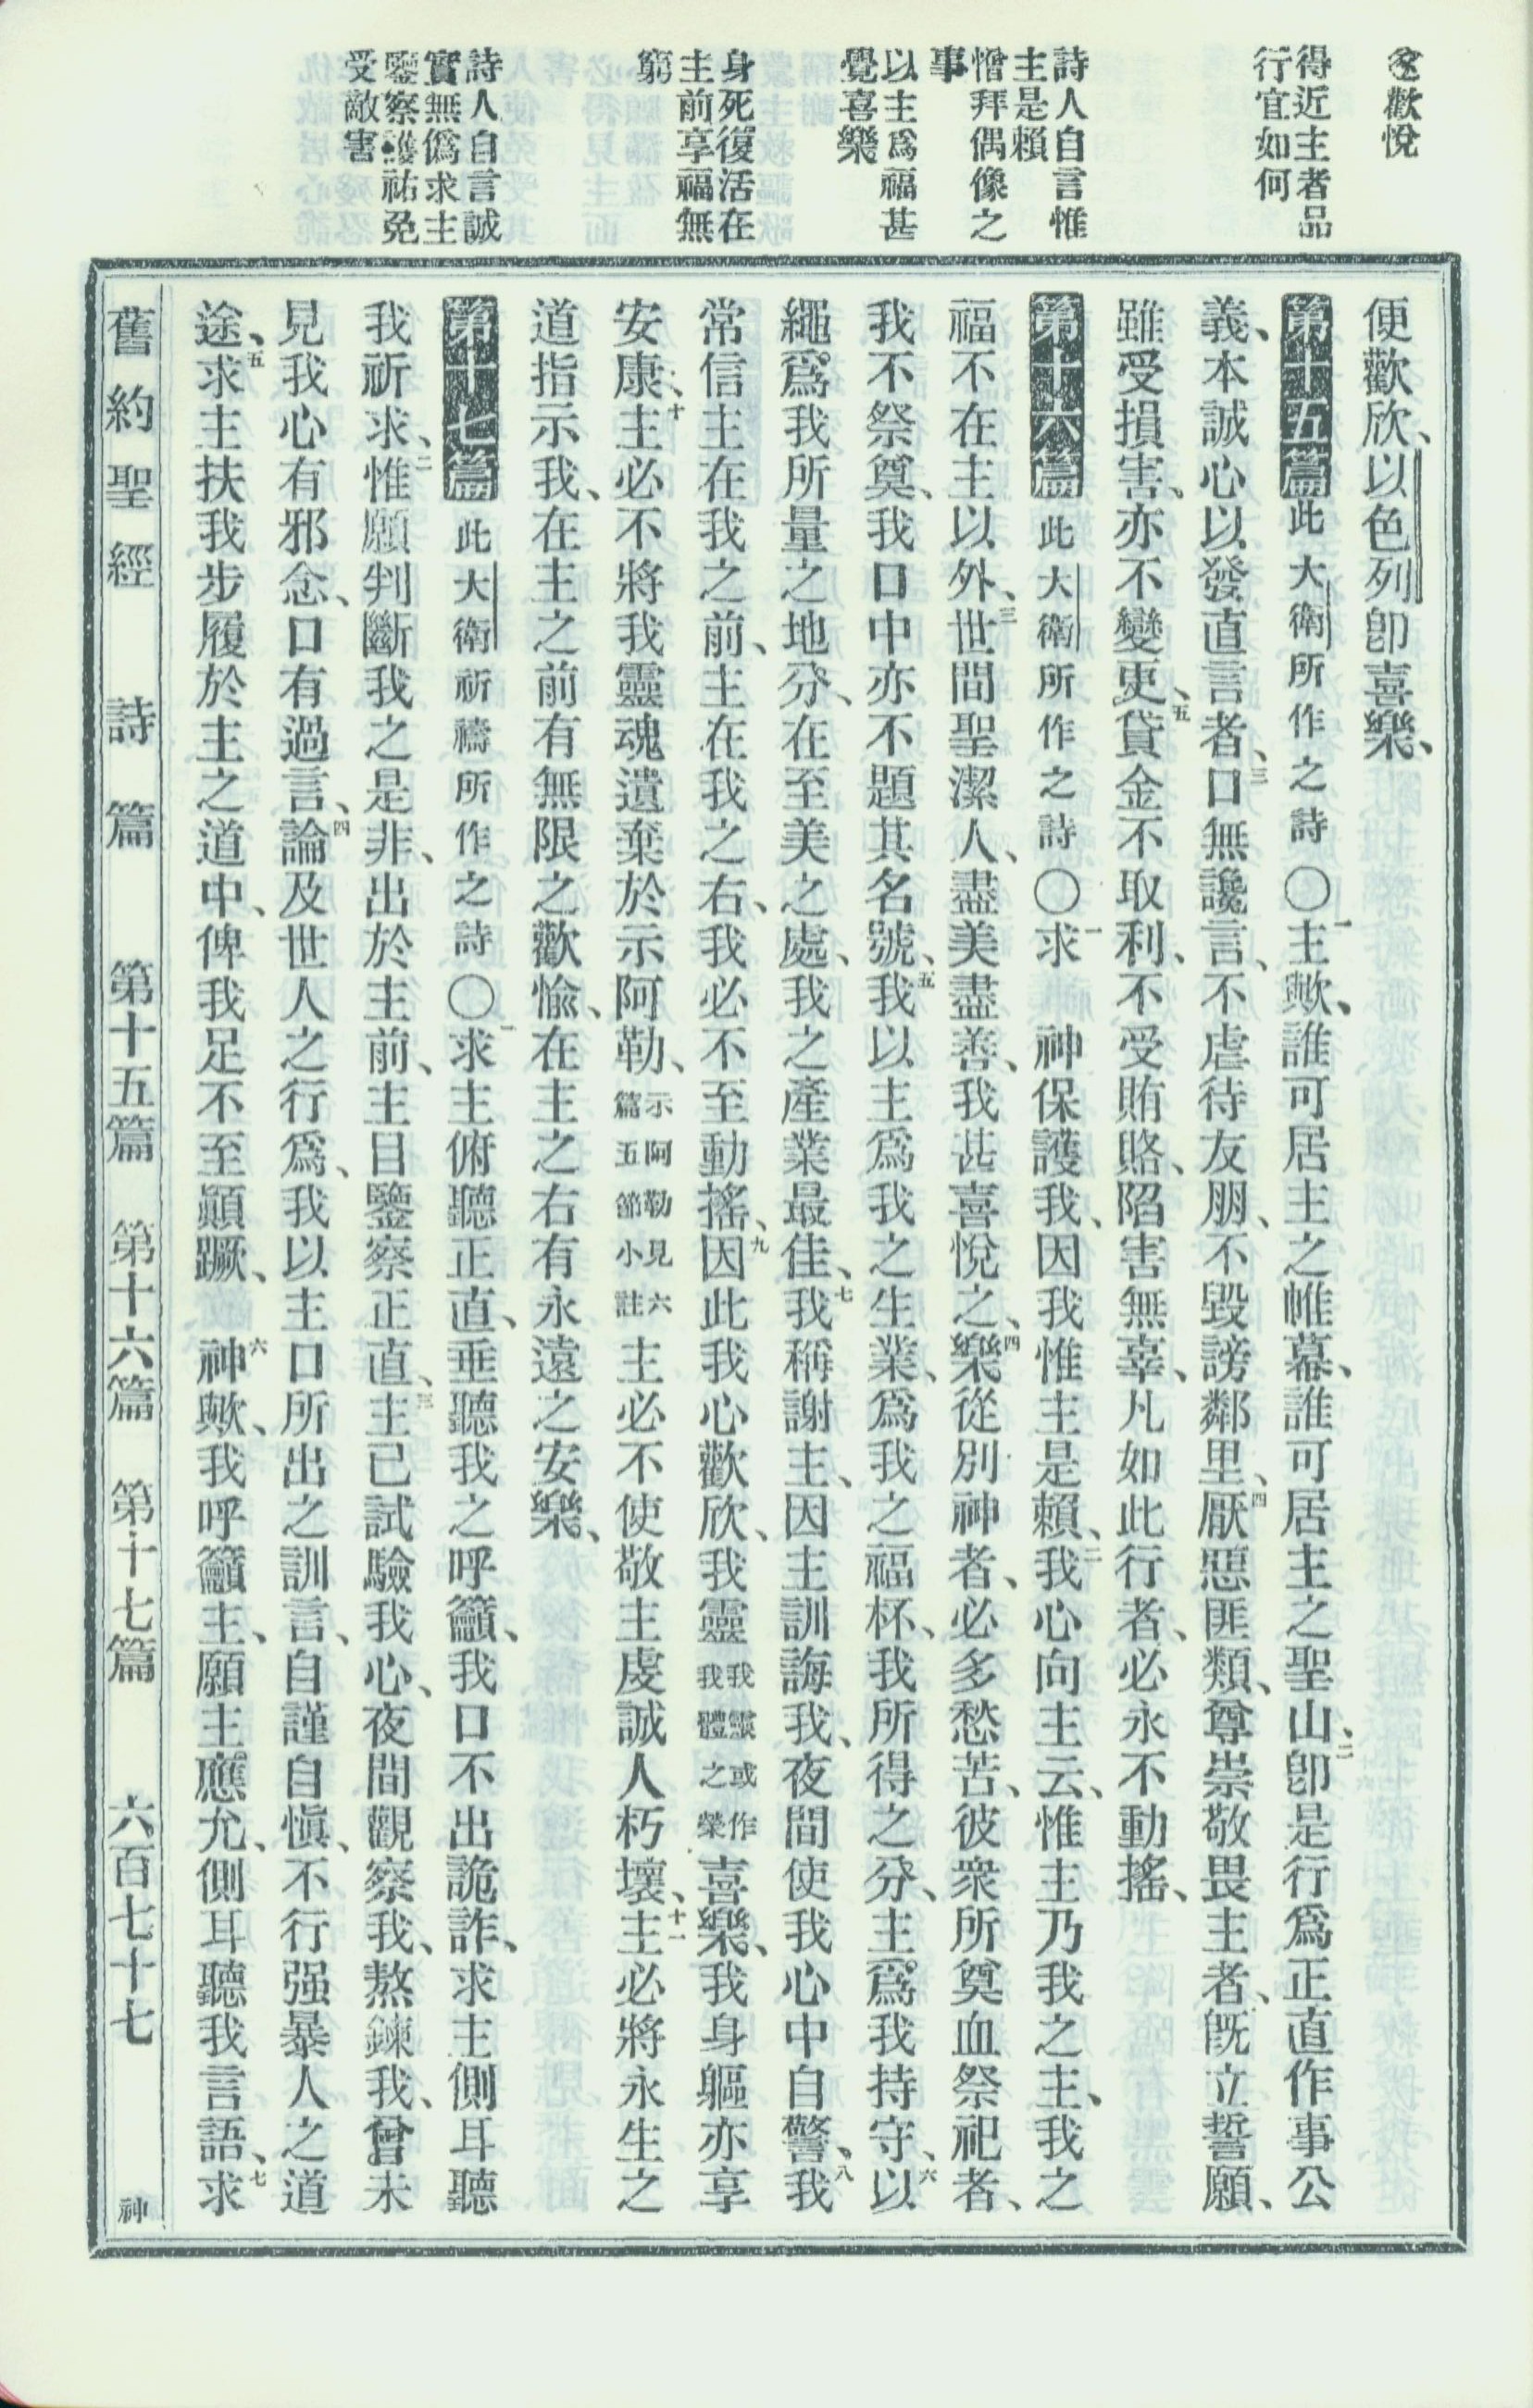 念歡悅
得近主者品
行宜如何
詩人自言惟
主是賴
憎拜偶像之
事
以主爲福甚
覺喜樂
身死復活在
主前享福無
窮
詩人自言誠
實無僞求主
鑒察護祐免
受敵害
便歡欣、以色列卽喜樂、
第十五篇 此大衛所作之詩〇一主歟、誰可居主之帷幕、誰可居主之聖山、二卽是行爲正直作事公
義、本誠心以發直言者、三口無讒言、不虐待友朋、不毀謗鄰里、四厭惡匪類、尊崇敬畏主者、旣立誓願、
雖受損害、亦不變更、五貸金不取利、不受賄賂、陷害無辜、凡如此行者、必永不動搖、
第十六篇 此大衛所作之詩〇一求 神保護我、因我惟主是賴、二我心向主云、惟主乃我之主、我之
福不在主以外、三世間聖潔人、盡美盡善、我甚喜悅之、四樂從別神者、必多愁苦、彼衆所奠血祭祀者、
我不祭奠、我口中亦不題其名號、五我以主爲我之生業、爲我之福杯、我所得之分、主爲我持守、六以
繩爲我所量之地分、在至美之處、我之產業最佳、七我稱謝主、因主訓誨我、夜間使我心中自警、八我
常信主在我之前、主在我之右、我必不至動搖、九因此我心歡欣、我靈我靈或作我體之榮喜樂、我身軀亦享
安康、十主必不將我靈魂遺棄於示阿勒、示阿勒見六篇五節小註主必不使敬主虔誠人朽壞、十一主必將永生之
道指示我、在主之前有無限之歡愉、在主之右有永遠之安樂、
第十七篇 此大衛祈禱所作之詩〇一求主俯聽正直、垂聽我之呼籲、我口不出詭詐、求主側耳聽
我祈求、二惟願判斷我之是非、出於主前、主目鑒察正直、三主已試驗我心、夜間觀察我、熬鍊我、曾未
見我心有邪念、口有過言、四論及世人之行爲、我以主口所出之訓言、自謹自愼、不行强暴人之道
途、五求主扶我步履於主之道中、俾我足不至顚蹶、 六神歟、我呼籲主、願主應允、側耳聽我言語、七求
舊約聖經 詩篇 第十五篇 第十六篇 第十七篇 六百七十七 神